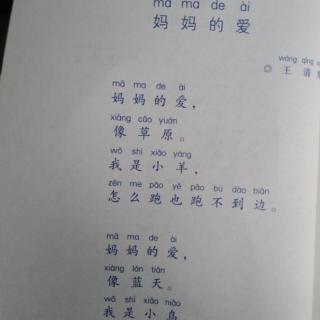 mā ma de ài
妈妈的爱
wáng qīng
◎ 王清
mā ma de ài
妈妈的爱，
xiàng cǎo yuán
像草原。
wǒ shì xiǎo yáng
我是小羊，
zěn me pǎo yě pǎo bú dào biān
怎么跑也跑不到边。
mā ma de ài
妈妈的爱，
xiàng lán tiān
像蓝天。
wǒ shì xiǎo niǎo
我是小鸟，